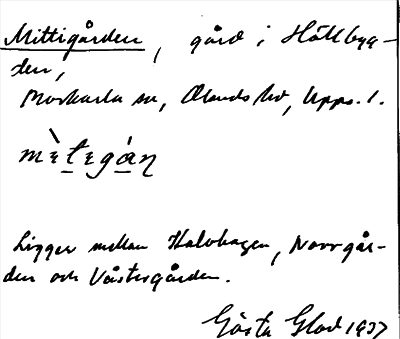 Mittigården, gård i Hållbyg-
den,
Morkarla sn, Olands hd, Upps. l.
mètegán
Ligger mellan Halvhagen, Norrgår-
den och Västergården.
Gösta Glad 1937